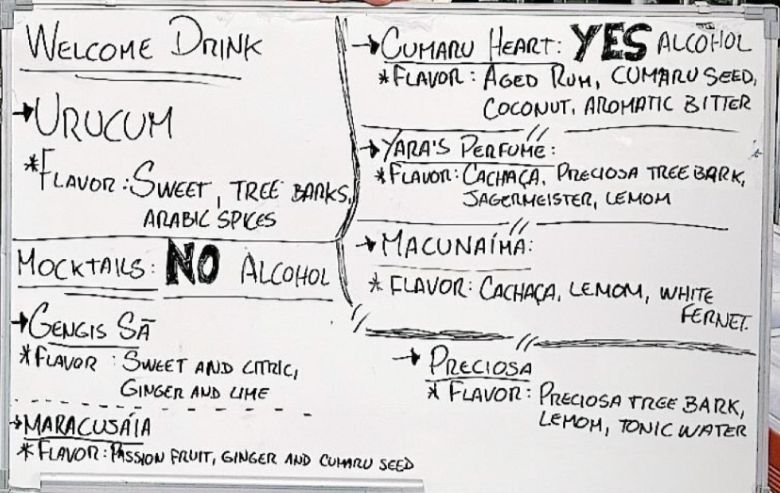 WELCOME DRINK
→URUCUM
*FLAVOR: SWEET, TREE BARKS,
ARABIC SPICES
MOCKTAILS: NO ALCOHOL
→GENGIS SÃ
*FLAVOR: SWEET AND CITRIC,
GINGER AND LIME
→MARACUSÁIA
*FLAVOR: PASSION FRUIT, GINGER AND CUMARU SEED
→CUMARU HEART: YES ALCOHOL
*FLAVOR: AGED RUM, CUMARU SEED,
COCONUT, AROMATIC BITTER
→YARA'S PERFUME:
*FLAVOR: CACHAÇA, PRECIOSA TREE BARK,
JAGERMEISTER, LEMOM
→MACUNAÍMA:
*FLAVOR: CACHAÇA, LEMOM, WHITE
FERNET.
→PRECIOSA
*FLAVOR: PRECIOSA TREE BARK,
LEMOM, TONIC WATER